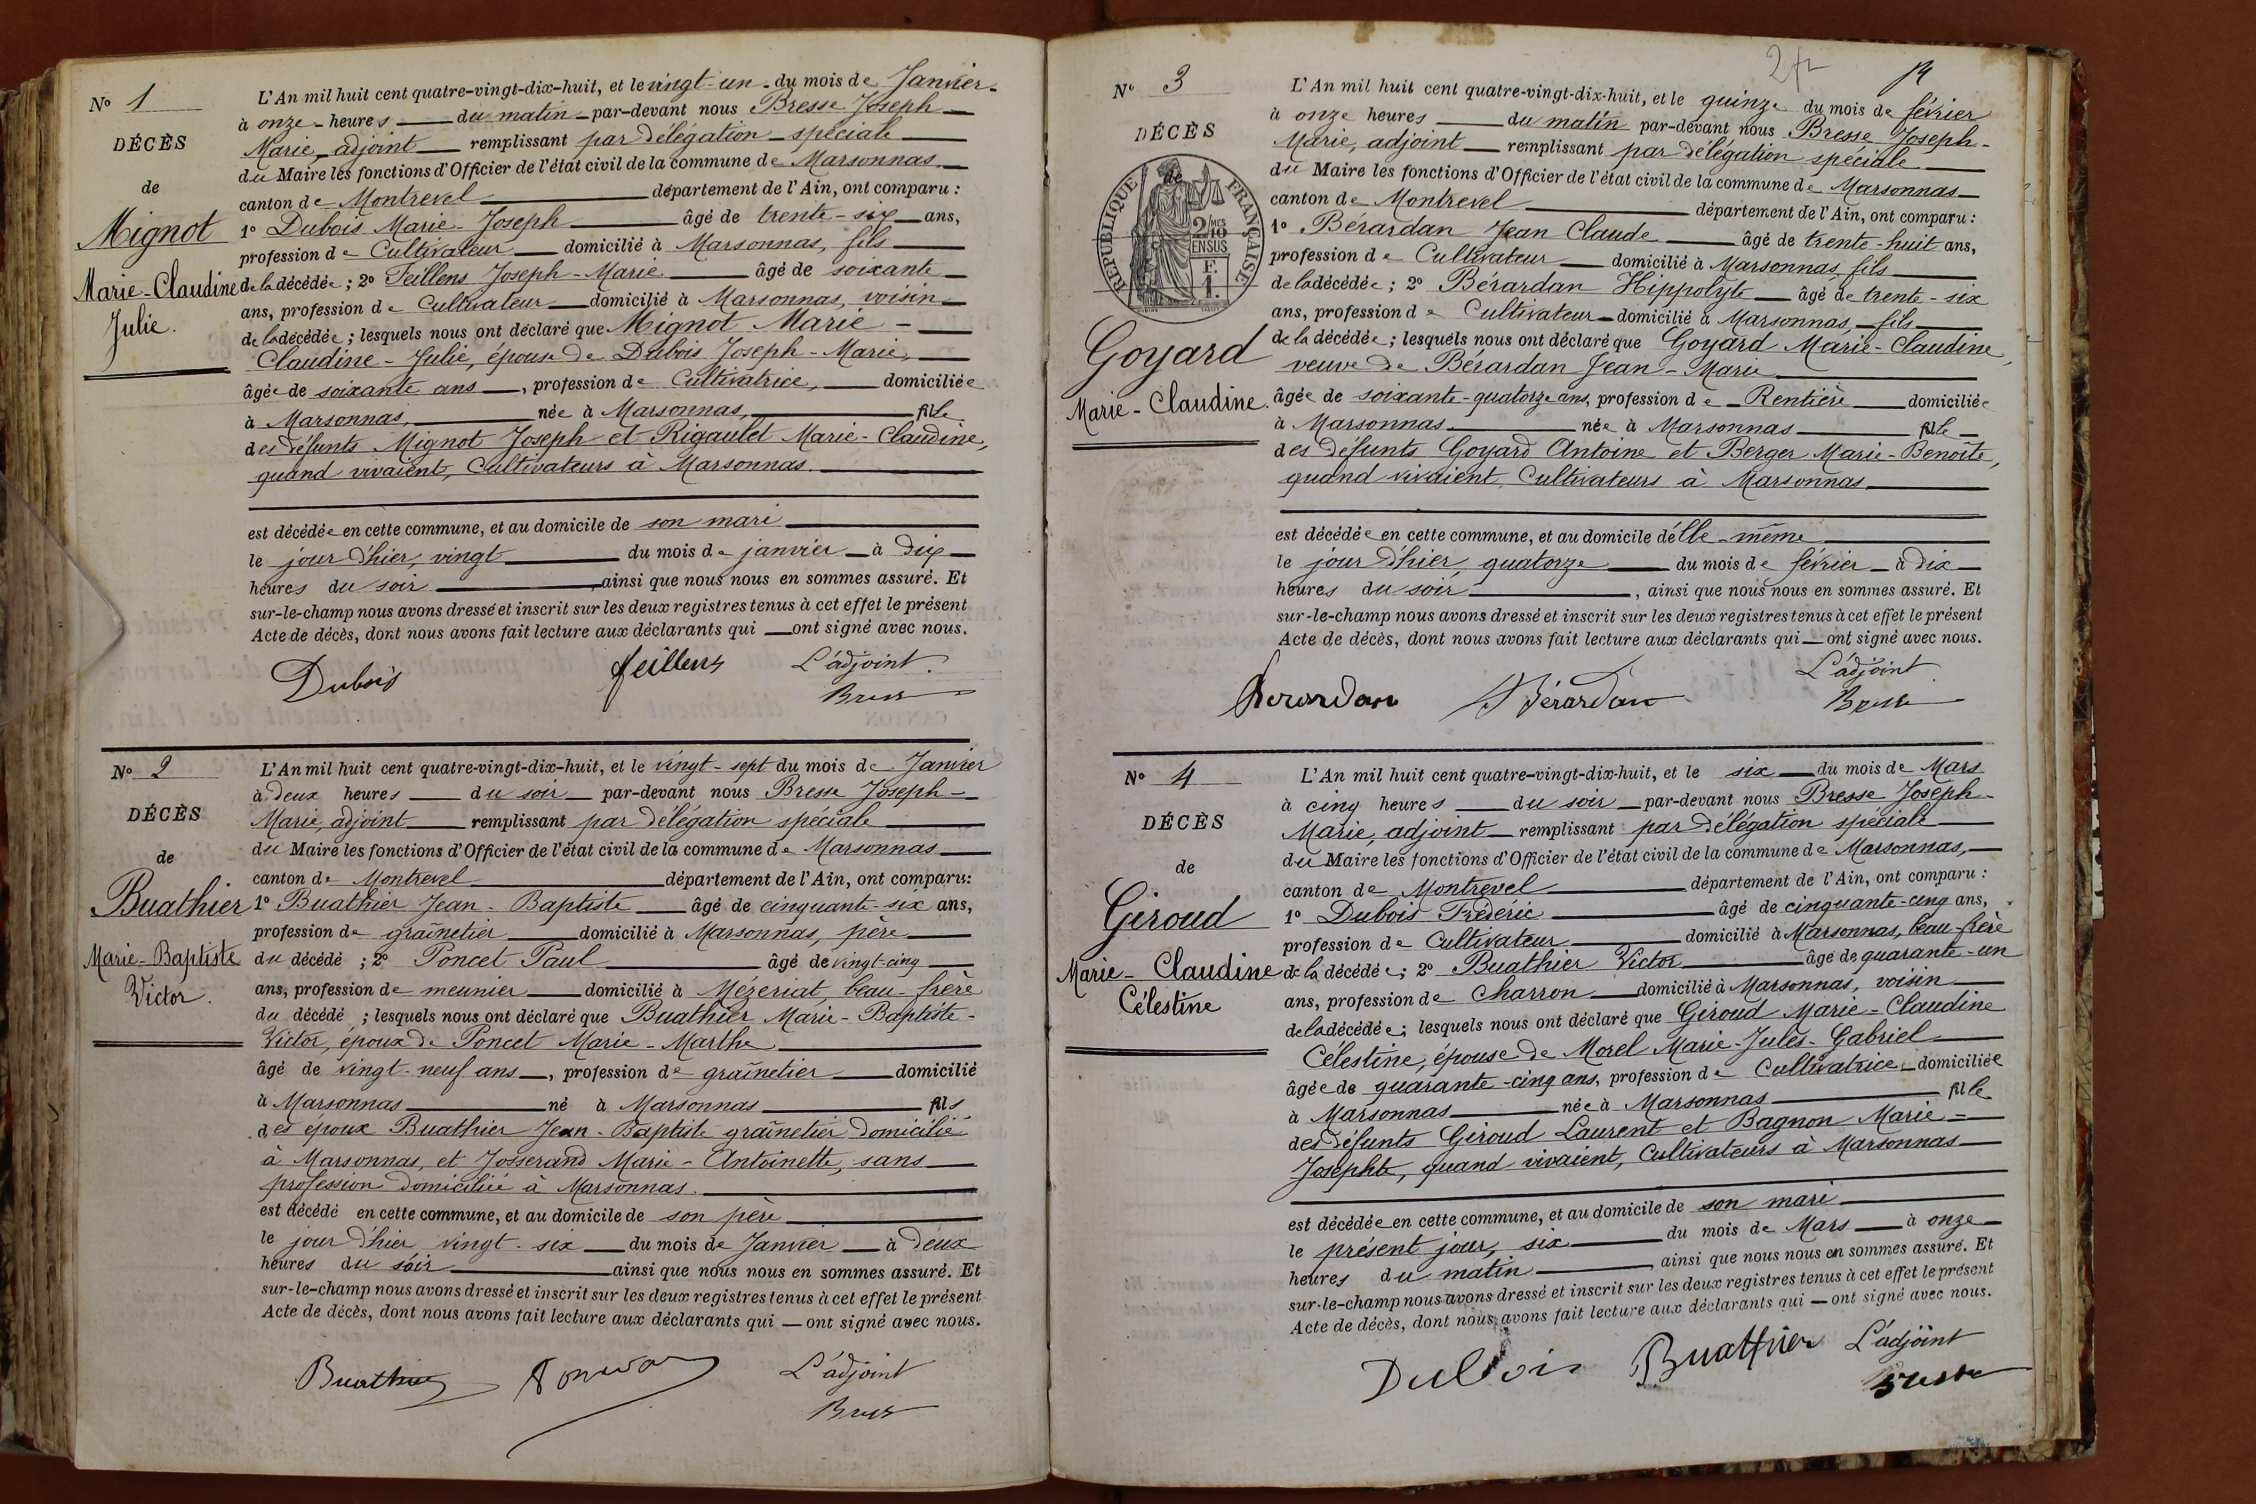 N° 1
DÉCÈS
de
Mignot
Marie-Claudine
Julie.
L'An mil huit cent quatre-vingt-dix-huit, et le vingt-un du mois de Janvier
à onze heures du matin par-devant nous Bresse Joseph
Marie, adjoint remplissant par délégation spéciale
du Maire les fonctions d'Officier de l'état civil de la commune de Marsonnas
canton de Montrevel département de l'Ain, ont comparu :
1° Dubois Marie-Joseph âgé de trente-six ans,
profession de Cultivateur domicilié à Marsonnas, fils
de la décédée ; 2° Feillens Joseph-Marie âgé de soixante
ans, profession de Cultivateur domicilié à Marsonnas, voisin
de la décédée ; lesquels nous ont déclaré que Mignot Marie-
Claudine-Julie, épouse de Dubois Joseph-Marie,
âgée de soixante ans, profession de Cultivatrice, domiciliée
à Marsonnas, née à Marsonnas, fille
des défunts Mignot Joseph et Rigaulet Marie-Claudine,
quand vivaient, Cultivateurs à Marsonnas.
est décédée en cette commune, et au domicile de son mari
le jour d'hier, vingt du mois de janvier à dix
heures du soir, ainsi que nous nous en sommes assuré. Et
sur-le-champ nous avons dressé et inscrit sur les deux registres tenus à cet effet le présent
Acte de décès, dont nous avons fait lecture aux déclarants qui ont signé avec nous.
Dubois feillens L'adjoint
Bresse
N° 2
DÉCÈS
de
Buathier
Marie-Baptiste
Victor.
L'An mil huit cent quatre-vingt-dix-huit, et le vingt-sept du mois de Janvier
à deux heures du soir par-devant nous Bresse Joseph-
Marie, adjoint remplissant par délégation spéciale
du Maire les fonctions d'Officier de l'état civil de la commune de Marsonnas
canton de Montrevel département de l'Ain, ont comparu :
1° Buathier Jean-Baptiste âgé de cinquante-six ans,
profession de grainetier domicilié à Marsonnas, père
du décédé ; 2° Poncet Paul âgé de vingt-cinq
ans, profession de meunier domicilié à Mézeriat, beau-frère
du décédé ; lesquels nous ont déclaré que Buathier Marie-Baptiste-
Victor, époux de Poncet Marie-Marthe
âgé de vingt-neuf ans, profession de grainetier domicilié
à Marsonnas né à Marsonnas fils
des époux Buathier Jean-Baptiste grainetier domicilié
à Marsonnas, et Josserand Marie-Antoinette, sans
profession domiciliée à Marsonnas.
est décédé en cette commune, et au domicile de son père
le jour d'hier vingt-six du mois de Janvier à deux
heures du soir ainsi que nous nous en sommes assuré. Et
sur-le-champ nous avons dressé et inscrit sur les deux registres tenus à cet effet le présent
Acte de décès, dont nous avons fait lecture aux déclarants qui ont signé avec nous.
Buathier L'adjoint
Bresse
N° 3
DÉCÈS
de
RÉPUBLIQUE FRANÇAISE
2/10 MES
EN SUS
F.
1.
Goyard
Marie-Claudine.
L'An mil huit cent quatre-vingt-dix-huit, et le quinze du mois de février
à onze heures du matin par-devant nous Bresse Joseph-
Marie, adjoint remplissant par délégation spéciale
du Maire les fonctions d'Officier de l'état civil de la commune de Marsonnas
canton de Montrevel département de l'Ain, ont comparu :
1° Bérardan Jean Claude âgé de trente-huit ans,
profession de Cultivateur domicilié à Marsonnas, fils
de la décédée ; 2° Bérardan Hippolyte âgé de trente-six
ans, profession de Cultivateur domicilié à Marsonnas, fils
de la décédée ; lesquels nous ont déclaré que Goyard Marie-Claudine,
veuve de Bérardan Jean-Marie
âgée de soixante-quatorze ans, profession de Rentière domiciliée
à Marsonnas née à Marsonnas fille
des défunts Goyard Antoine et Berger Marie-Benoîte,
quand vivaient Cultivateurs à Marsonnas
est décédée en cette commune, et au domicile d'elle-même
le jour d'hier, quatorze du mois de février à dix
heures du soir, ainsi que nous nous en sommes assuré. Et
sur-le-champ nous avons dressé et inscrit sur les deux registres tenus à cet effet le présent
Acte de décès, dont nous avons fait lecture aux déclarants qui ont signé avec nous.
Berardan Bérardan L'adjoint
Bresse
N° 4
DÉCÈS
de
Giroud
Marie-Claudine
Célestine
L'An mil huit cent quatre-vingt-dix-huit, et le six du mois de Mars
à cinq heures du soir par-devant nous Bresse Joseph-
Marie, adjoint remplissant par délégation spéciale
du Maire les fonctions d'Officier de l'état civil de la commune de Marsonnas,
canton de Montrevel département de l'Ain, ont comparu :
1° Dubois Frédéric âgé de cinquante-cinq ans,
profession de Cultivateur domicilié à Marsonnas, beau-frère
de la décédée ; 2° Buathier Victor âgé de quarante-un
ans, profession de Charron domicilié à Marsonnas, voisin
de la décédée ; lesquels nous ont déclaré que Giroud Marie-Claudine
Célestine, épouse de Morel Marie-Jules-Gabriel
âgée de quarante-cinq ans, profession de Cultivatrice domiciliée
à Marsonnas née à Marsonnas fille
des défunts Giroud Laurent et Bagnon Marie-
Josephte, quand vivaient, Cultivateurs à Marsonnas
est décédée en cette commune, et au domicile de son mari
le présent jour, six du mois de Mars à onze
heures du matin, ainsi que nous nous en sommes assuré. Et
sur-le-champ nous avons dressé et inscrit sur les deux registres tenus à cet effet le présent
Acte de décès, dont nous avons fait lecture aux déclarants qui ont signé avec nous.
Dubois Buathier L'adjoint
Bresse